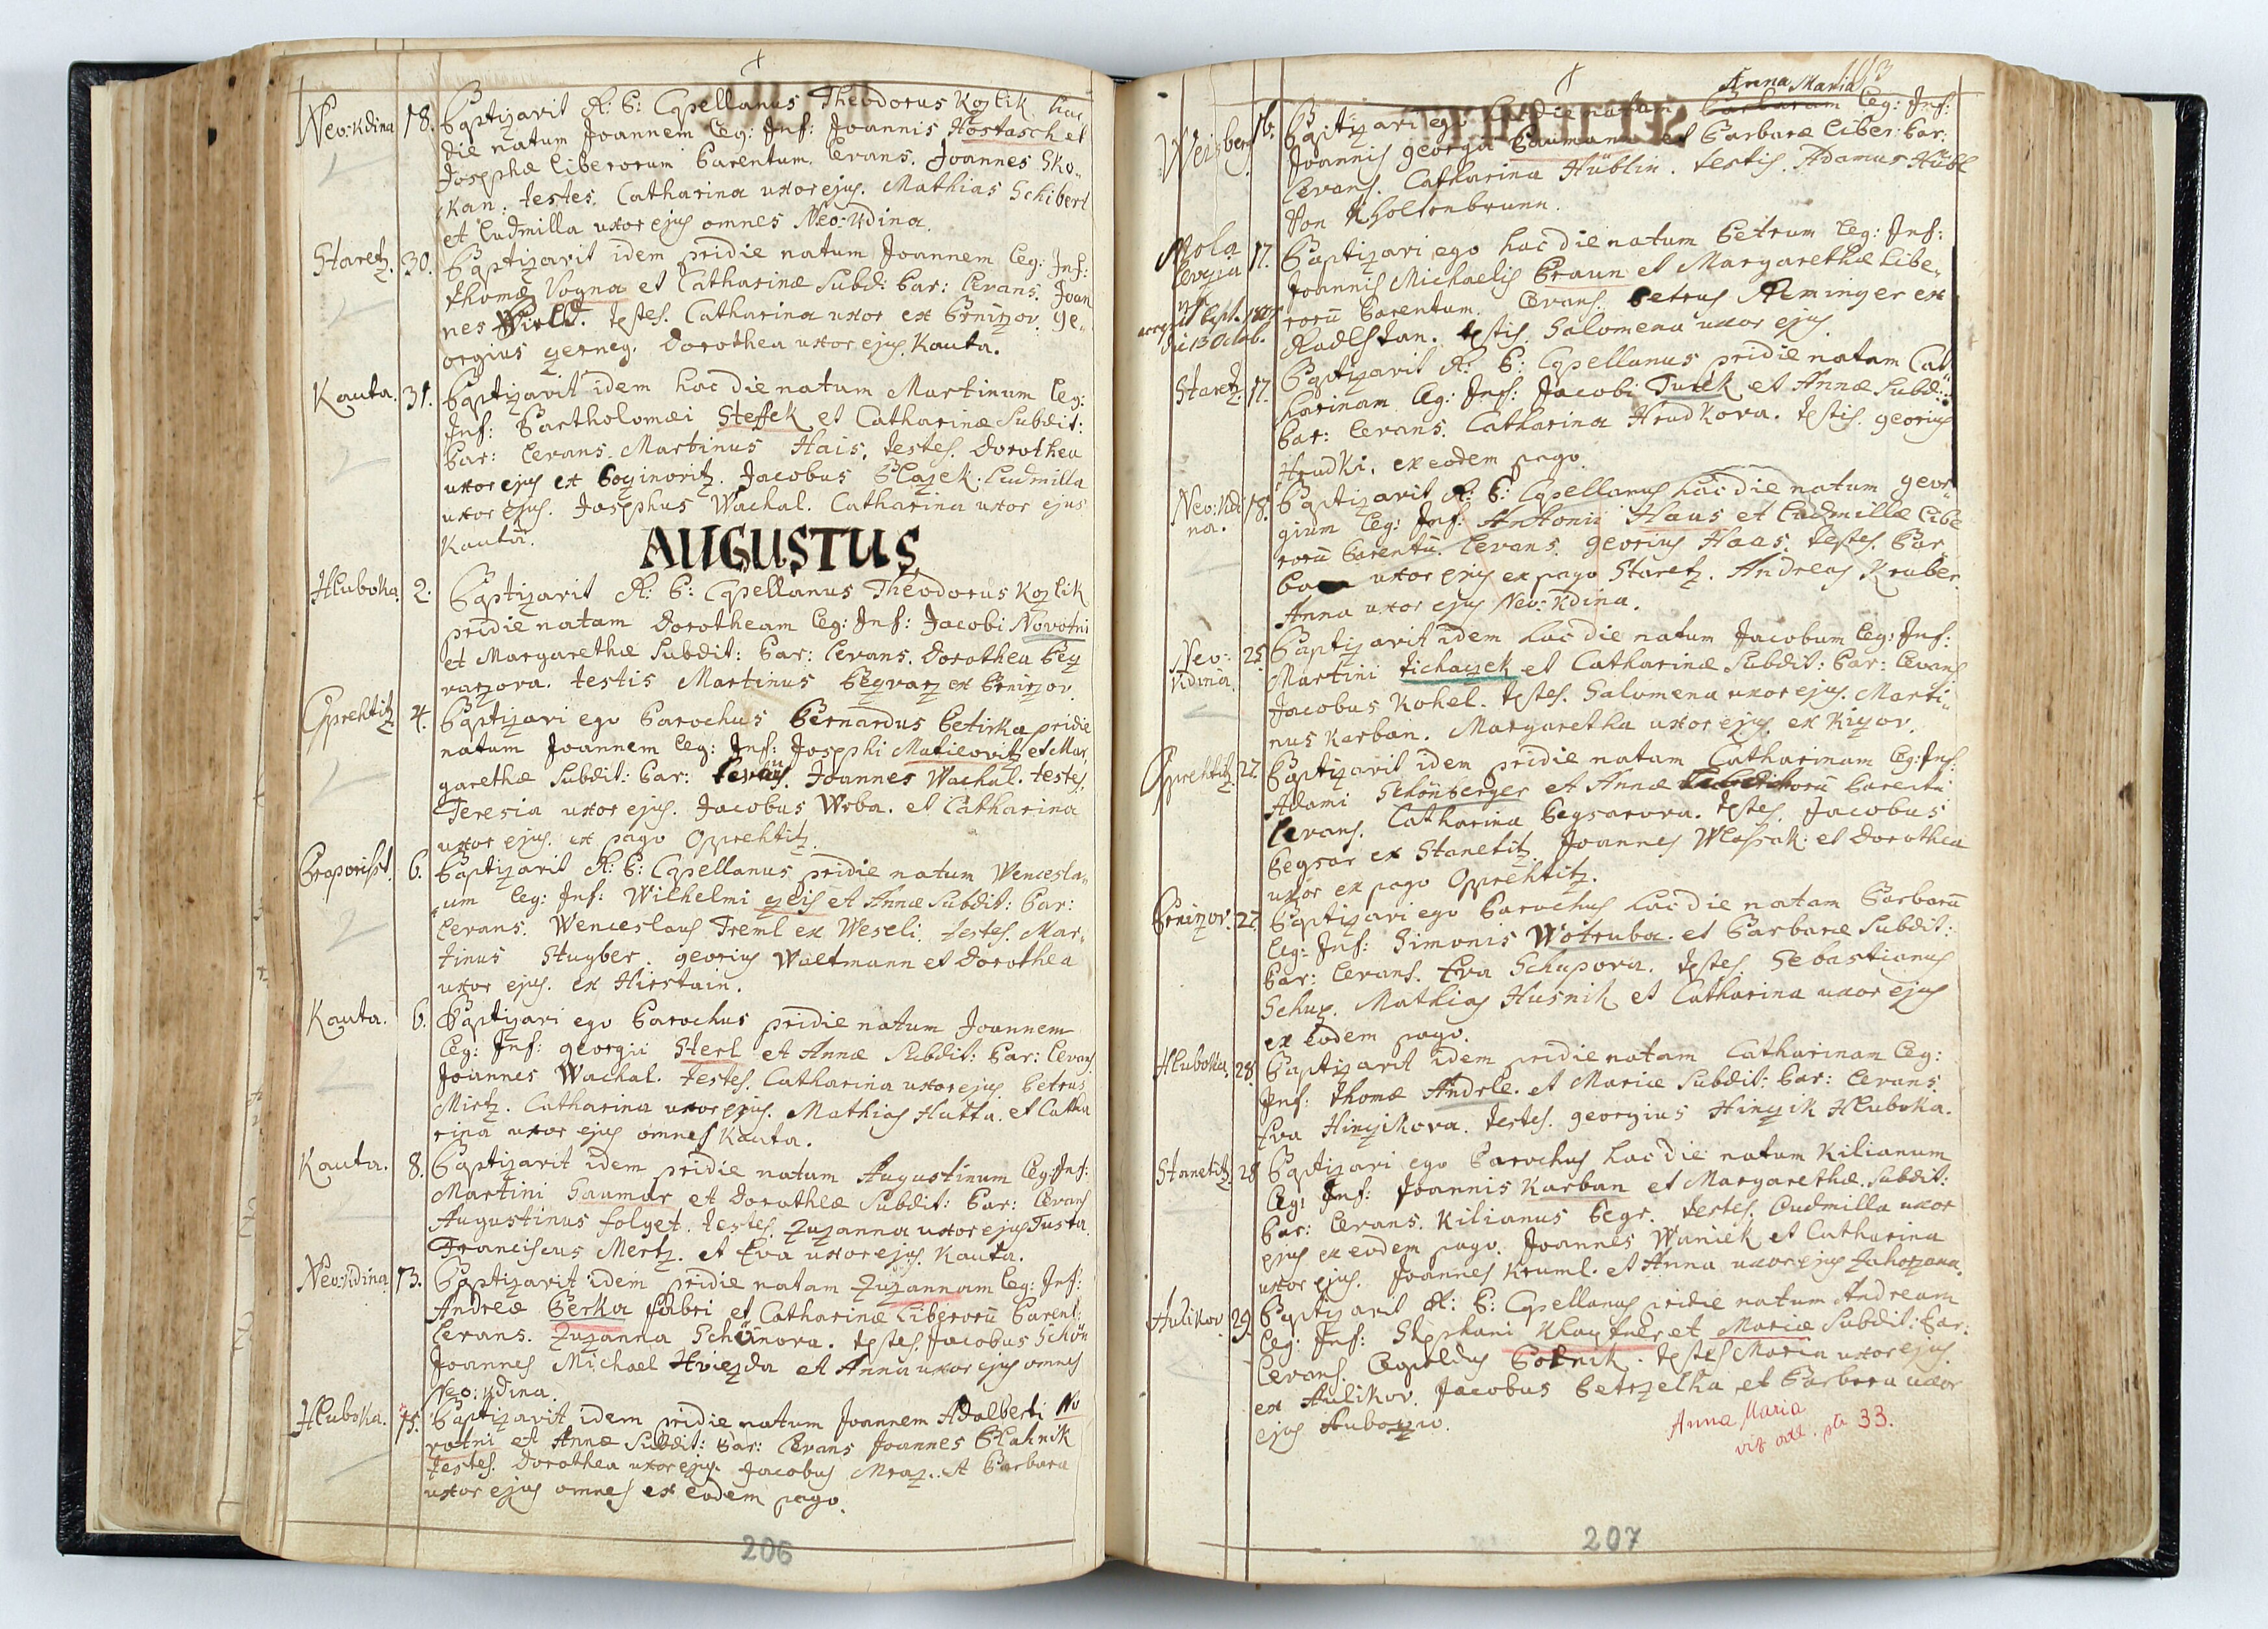 Neo: Kdina 18. Baptizavit A: P: Cpellanus Theodorus Kozlik hac
die natum Joannem Leg: Inf: Joannis Hostasch et
Josephæ Liberorum Parentum. Levans. Joannes Sko„
kan. testes. Catharina uxor ejus. Mathias Schibert
et Ludmilla uxor ejus omnes Neo: Kdina.
Staretz. 30. Baptizavit idem pridie natum Joannem Leg: Inf:
thomæ Vogna et Catharinæ Subd: Par: Levans. Joan
nes Wield. testes. Catharina uxor ex Prnirzov. ge„
orgius gerneg. Dorothea uxor ejus. Kauta.
Kauta. 31. Baptizavit idem hac die natum Martinum Leg:
Inf: Partholomæi Steffek et Catharinæ Subdit:
Par: Levans. Martinus Hais. testes. Dorothea
uxor ejus ex Poginovitz. Jacobus Blazek. Ludmilla
uxor ejus. Josephus Wachal. Catharina uxor ejus
Kauta.
AUGUSTUS
Hluboka. 2. Baptizavit A: P: Cpellanus Theodorus Kozlik
pridie natam Dorotheam Leg: Inf: Jacobi Novotni
et Margarethæ Subdit: Par: Levans. Dorothea Pey
varzova. testis Martinus Pegvarz ex Prnirzov.
Oprehtitz 4. Baptizavi ego Parochus Bernardus Petirka pridie
natum Joannem Leg: Inf: Josephi Matieovitz et Mar„
garethæ Subdit: Par: Levans. Joannes Wachal. testes.
Teresia uxor ejus. Jacobus Wrba. et Catharina
uxor ejus. ex pago Opprehtitz.
Praporisst. 6. Baptizavit A: P: Cpellanus pridie natum Wencesla„
um Leg: Inf: Wilhelmi zeis et Annæ Subdit: Par:
Levans. Wenceslaus Treml ex Weseli. testes. Mar„
tinus Stuyber. georius Waltmann et Dorothea
uxor ejus. ex Hirstain.
Kauta. 6. Baptizavi ego Parochus pridie natum Joannem
Leg: Inf: georgii Sterl et Annæ Subdit: Par: Levans
Joannes Wachal. testes. Catharina uxor ejus. Petrus
Mirtz. Catharina uxor ejus. Mathias Hutta. et Catha
rina uxor ejus omnes Kauta.
Kauta. 8. Baptizavit idem pridie natum Augustinum Leg: Inf:
Martini Saumar et Dorotheæ Subdit: Par: Levans
Augustinus folget. testes. Zuzanna uxor ejus Tusta.
Franciscus Mertz. et Eva uxor ejus. Kauta.
Neo: Kdina 13. Baptizavit idem pridie natam Zuzannam Leg: Inf:
Andreæ Perka fabri et Catharinæ Liberorũ Parent:
Levans. Zuzanna Schönova. testes. Jacobus Schön
Joannes Michael Hviezda et Anna uxor ejus omnes
Neo: Kdina.
Hluboka. 15. Baptizavit idem pridie natum Joannem Adalberti No
votni et Annæ Subdit: Par: Levans Joannes Blahnik
testes. Dorothea uxor ejus. Jacobus Mraz. et Barbara
uxor ejus omnes ex eodem pago.
206
113
Anna Maria
Weisberg 16. Baptizavi ego hac die natam Barbaram Leg: Inf:
Joannis georgii Baumann et Barbaræ Liber: Par:
Levans. Catharina Hüblin. testis. Adamus Hübl
Von Kholtenbrunn.
Mola Cerezia 17. Baptizavi ego hac die natum Petrum Leg: Inf:
Joannis Michaelis Braun et Margarethæ Libe„
rorũ Parentum. Levans. Petrus Neminger ex
Kodlstan. testis. Salomena uxor ejus.
die 13 Octob.
Staretz. 17. Baptizavit A: P: Cpellanus pridie natam Cat
harinam Leg: Inf: Jacobi Turek et Annæ Subd:
Par: Levans. Catharina Hrudkova. testis. georius
Hrudki. ex eodem pago.
Neo: Kdi
na. 18. Baptizavit A: P: Cpellanus hac die natum geor„
gium Leg: Inf: Antonii Haus et Ludmillæ Libe
rorũ Parentũ. Levans. georius Haas. testes. Bar
ba uxor ejus ex pago Staretz. Andreas Kruber.
Anna uxor ejus Neo: Kdina.
Neo:
Kdina. 25. Baptizavit idem hac die natum Jacobum Leg: Inf:
Martini tichazek et Catharinæ Subdit: Par: Levans
Jacobus Kohel. testes. Salomena uxor ejus. Marti„
nus Karban. Margaretha uxor ejus. ex Kizov.
Oprehtitz. 27. Baptizavit idem pridie natam Catharinam Leg: Inf:
Adami Schönberger et Annæ Parentũ
Levans. Catharina Pegsarova. testes. Jacobus
Pegsar ex Stanetitz. Joannes Wlassak. et Dorothea
uxor ex pago Opprehtitz.
Prnirzov. 27. Baptizavi ego Parochus hac die natam Barbarã
Leg: Inf: Simonis Wotruba. et Barbaræ Subdit:
Par: Levans. Eva Schupova. testes. Sebastianus
Schup. Mathias Husnik et Catharina uxor ejus
ex eodem pago.
Hluboka. 28. Baptizavit idem pridie natam Catharinam Leg:
Inf: thomæ Andrle. et Mariæ Subdit: Par: Levans.
Eva Hinzikova. testes. georgius Hinzik Hluboka.
Stanetitz 28 Baptizavi ego Parochus hac die natum Kilianum
Leg: Inf: Joannis Karban et Margarethæ. Subdit:
Par: Levans. Kilianus Pegr. testes. Ludmilla uxor
ejus ex eodem pago. Joannes Waniek et Catharina
uxor ejus. Joannes Kruml. et Anna uxor ejus Zahorzana.
Aulikov. 29. Baptizavit A: P: Cpellanus pridie natum Andream
Leg: Inf: Stephani et Mariæ Subdit: Par:
Levans. Leopoldus Polnik. testes Maria uxor ejus.
ex Aulikov. Jacobus Petrzelka et Barbara uxor
ejus
Anna Maria
viz odd. str 33.
207